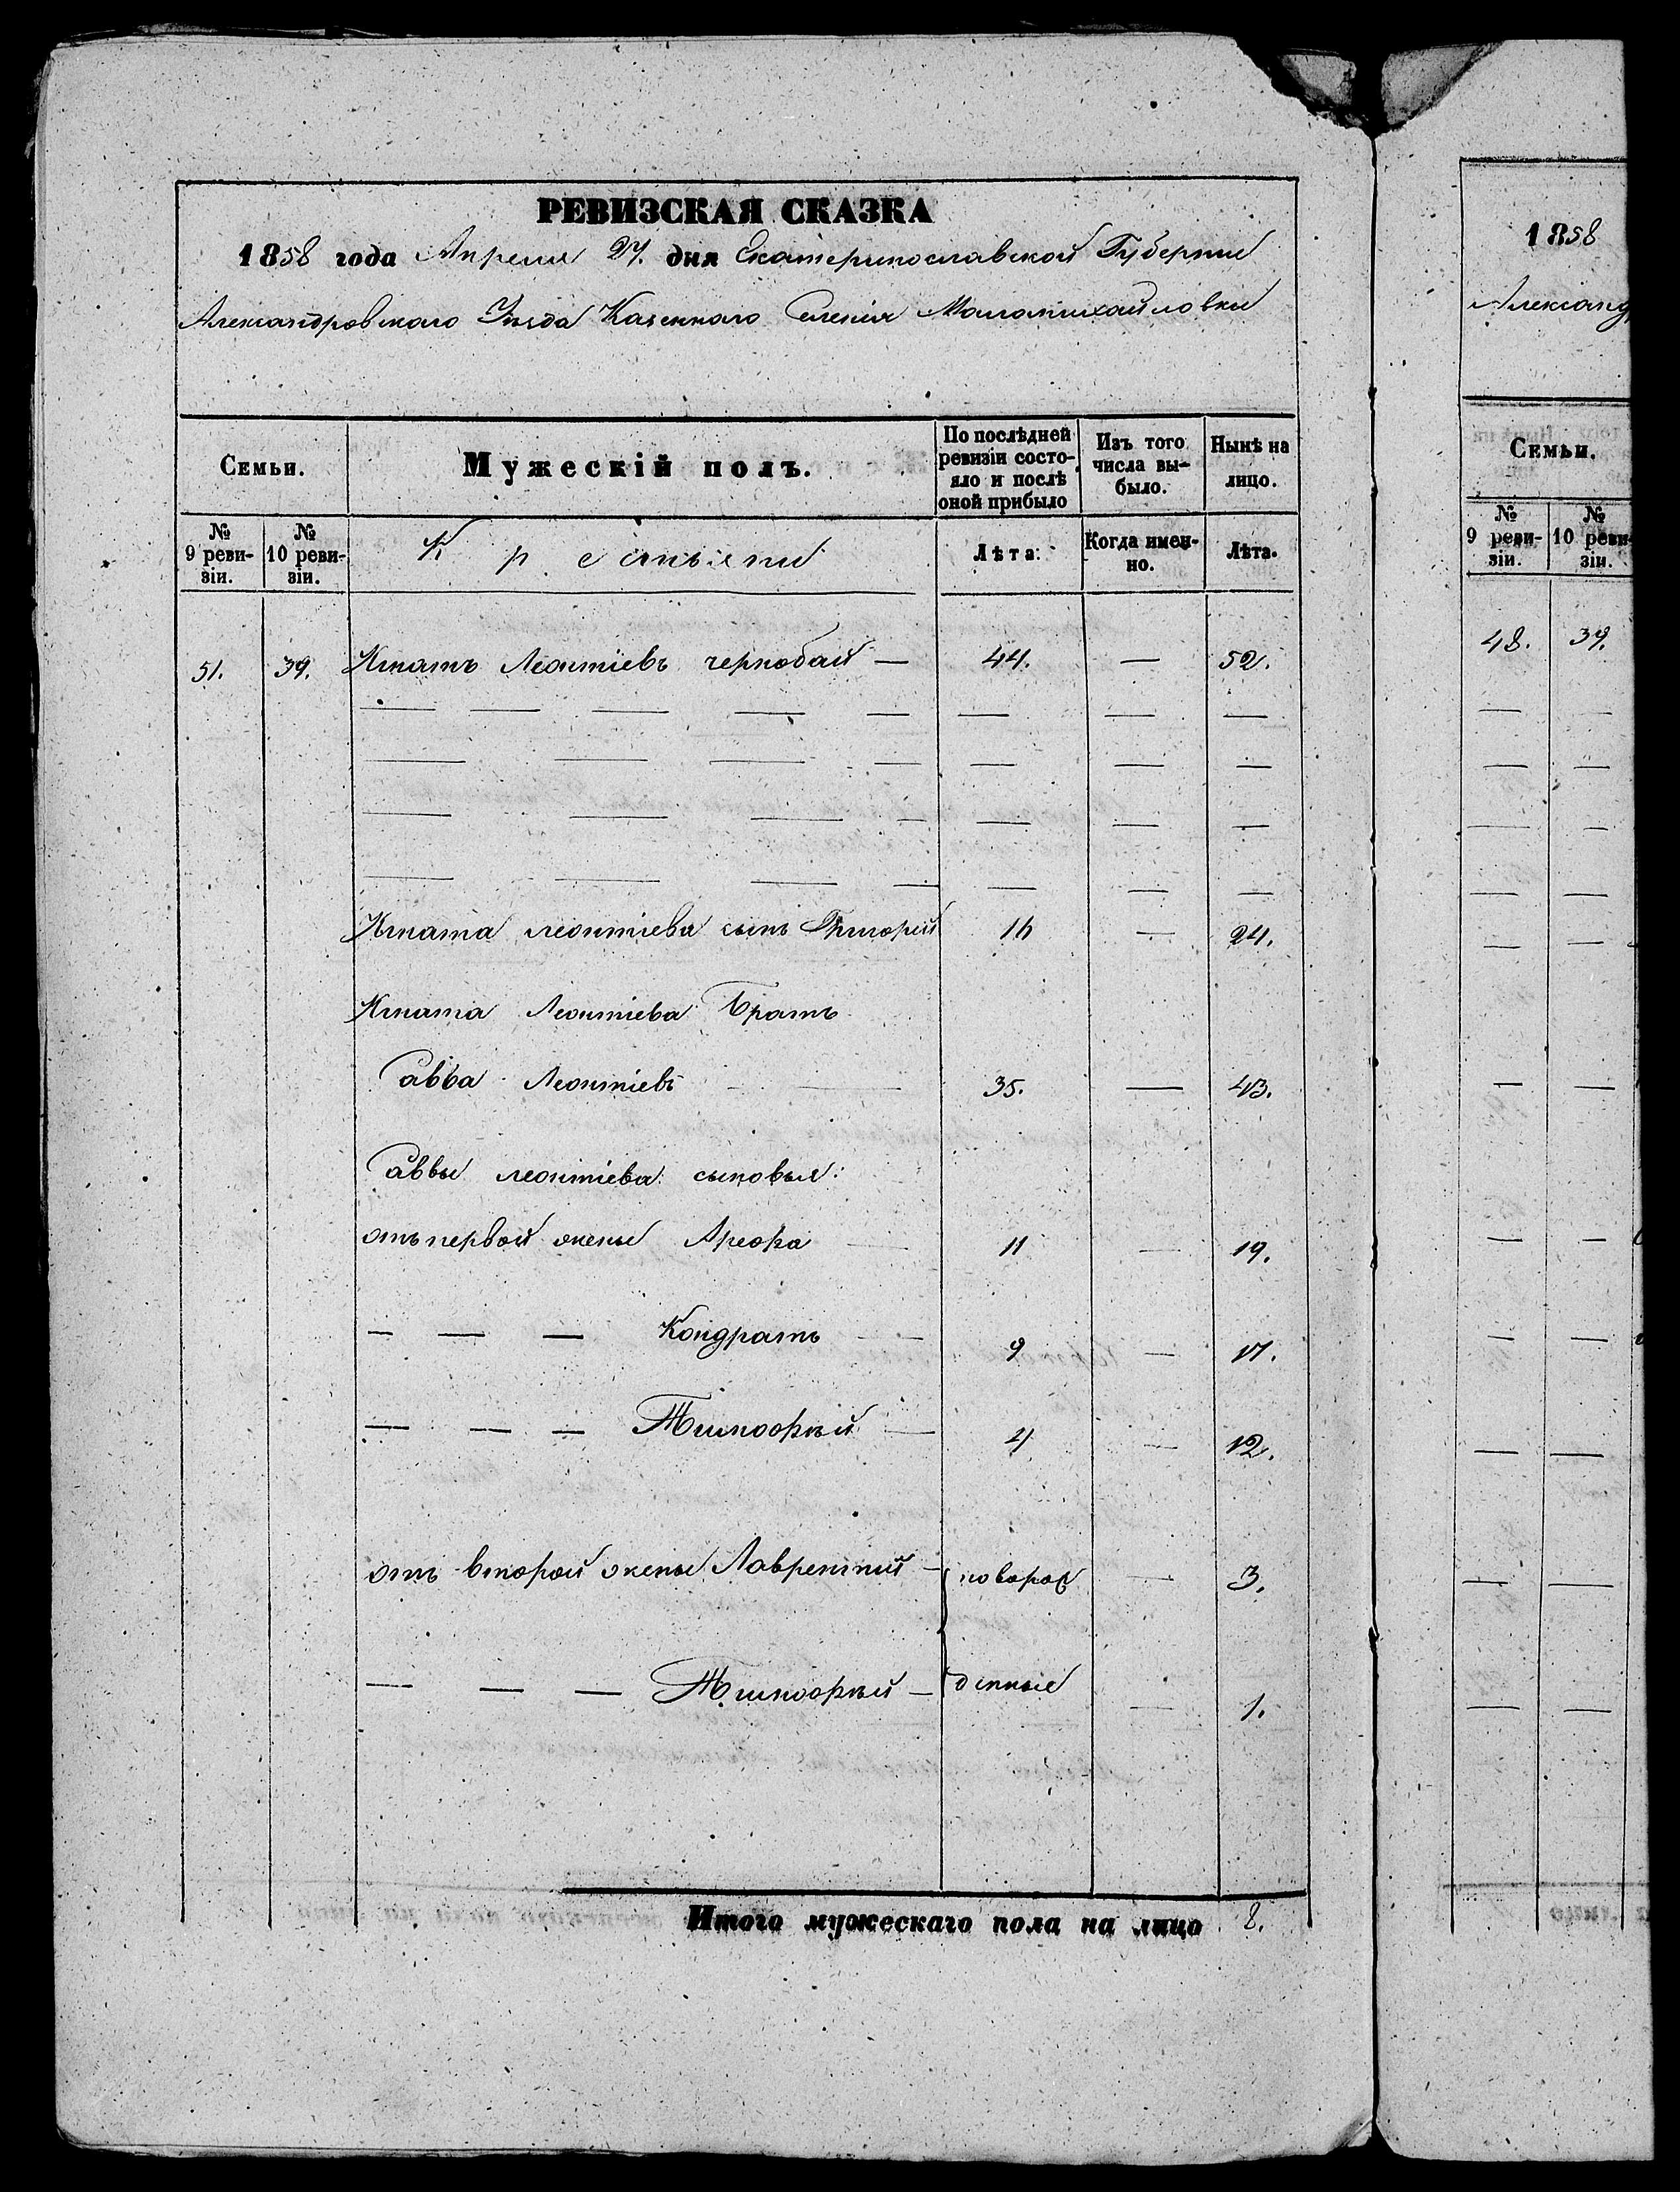 РЕВИЗСКАЯ СКАЗКА
1858 года Апреля 27. дня Екатеринославской Губернии
Александровскаго Уѣзда Казеннаго Селенія Маломихайловки
Семьи.
Мужескій полъ.
По послѣдней ревизіи состояло и послѣ оной прибыло
Изъ того числа вы-было.
Нынѣ на лицо.
№ 9 реви-зіи.
№ 10 реви-зіи.
Крестьяни
Лѣта.
Когда имен-но.
Лѣта.
51. 39. Игнатъ Леонтіевъ чернобай — 44. — 52.
Игната леонтіева сынъ Григорий 16 — 24.
Игната Леонтіева Братъ
Савва Леонтіевъ 35. — 43.
Саввы леонтіева сыновья:
отъ первой жены Арефа — 11 — 19.
— — — Кондратъ — 9 — 17.
— — — Тимофѣй — 4 — 12.
отъ второй жены Лаврентий — новорож — 3.
— — — Тимофѣй — денные — 1.
Итого мужескаго пола на лицо 8.
1858
Александ
Семьи.
№ 9 реви-зіи.
№ 10 реви-зіи.
48. 39.